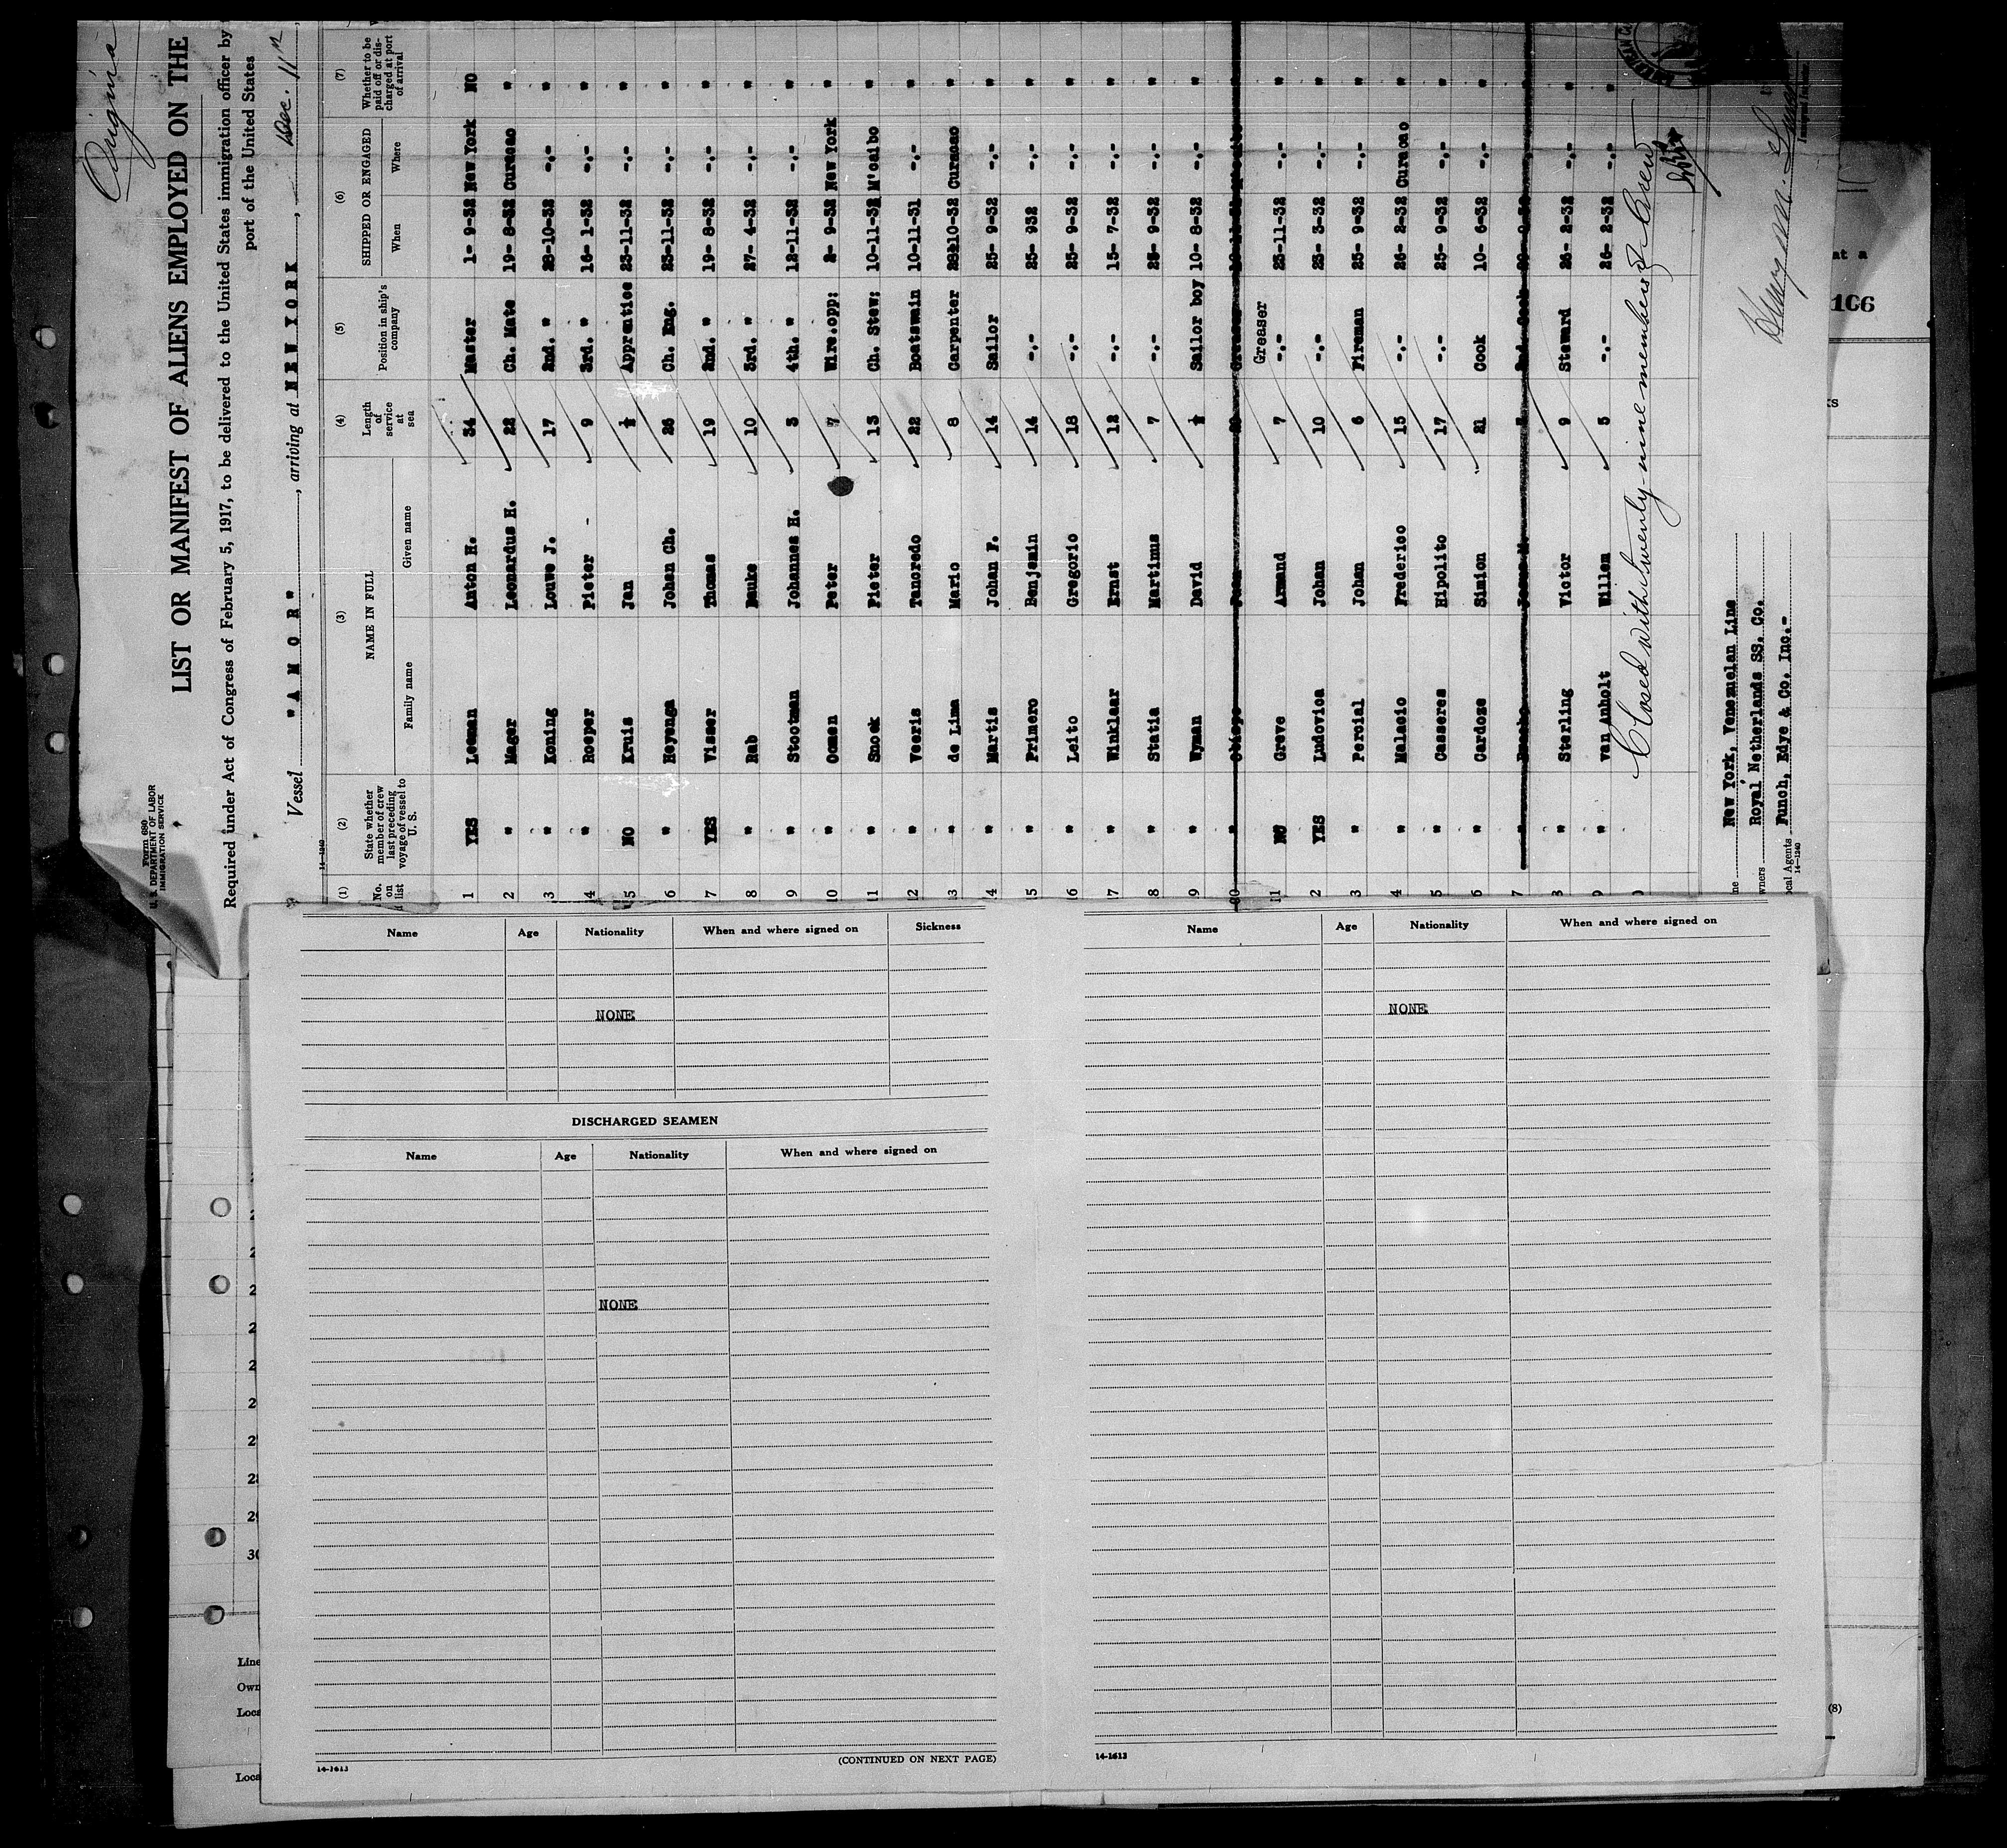 Original
Form 680
U. S. DEPARTMENT OF LABOR
IMMIGRATION SERVICE
LIST OR MANIFEST OF ALIENS EMPLOYED ON THE
Required under Act of Congress of February 5, 1917, to be delivered to the United States immigration officer by
port of the United States
Vessel "A M O R", arriving at NEW YORK, Dec. 11th
14-1240
(1) (2) (3) (4) (5) (6) (7)
No. on list State whether member of crew last preceding voyage of vessel to U. S. NAME IN FULL Length of service at sea Position in ship's company SHIPPED OR ENGAGED Whether to be paid off or discharged at port of arrival
Family name Given name When Where
1 YES Leeman Anton H. 34 Master 1- 9-32 New York NO
2 " Mager Leonardus H. 22 Ch. Mate 19- 8-32 Curacao "
3 " Koning Louwe J. 17 2nd. " 28-10-32 -.- "
4 " Roeper Pieter - 9 3rd. " 16- 1-32 -.- "
5 NO Kruis Jan ½ Apprentice 23-11-32 -.- "
6 " Heyenga Johan Ch. 26 Ch. Eng. 23-11-32 -.- "
7 YES Visser Thomas 19 2nd. " 19- 8-32 -.- "
8 " Rab Bauke 10 3rd. " 27- 4-32 -.- "
9 " Stootman Johannes H. 3 4th. " 12-11-32 -.- "
10 " Oomen Peter 7 Wire.opp: 2- 9-32 New York "
11 " Snoek Pieter 13 Ch. Stew: 10-11-32 M'caibo "
12 " Veeris Tancredo 22 Boatswain 10-11-31 -.- "
13 " de Lima Mario 8 Carpenter 28210-32 Curacao "
14 " Martis Johan F. 14 Sailor 25- 9-32 -.- "
15 " Primero Benjamin 14 -.- 25- 932 -.- "
16 " Leito Gregorio 18 -.- 25- 9-32 -.- "
17 " Winklaar Ernst 12 -.- 15- 7-32 -.- "
18 " Statia Martinus 7 -.- 25- 9-32 -.- "
19 " Wyman David ½ Sailor boy 10- 8-32 -.- "
20 " Obispo Juan 20 Greaser
Greaser
11 NO Greve Armand 7 -.- 23-11-32 -.- "
2 YES Ludovica Johan 10 -.- 23- 3-32 -.- "
3 " Percial Johan 6 Fireman 25- 9-32 -.- "
4 " Malacio Frederico 15 -.- 26- 2-32 Curacao "
5 " Casseres Hipolito 17 -.- 25- 9-32 -.- "
6 " Cardoze Simion 21 Cook 10- 6-32 -.- "
7 " 2nd. Cook
8 " Sterling Victor 9 Steward 26- 2-32 -.- "
9 " van Anholt Willem 5 -.- 26- 2-32 -.- "
0
Closed with twenty-nine members of Crew
New York, Venezuelan Line
Owners Royal Netherlands SS. Co.
Local Agents Funch, Edye & Co. Inc.-
14-1240
Immigrant Inspector
at a
1C6
ks
(8)
Name Age Nationality When and where signed on Sickness
NONE
DISCHARGED SEAMEN
Name Age Nationality When and where signed on
NONE
(CONTINUED ON NEXT PAGE)
14-1613
Name Age Nationality When and where signed on
NONE
14-1613
2
2
2
2
2
2
2
28
29
30
Line
Own
Loca
Loca